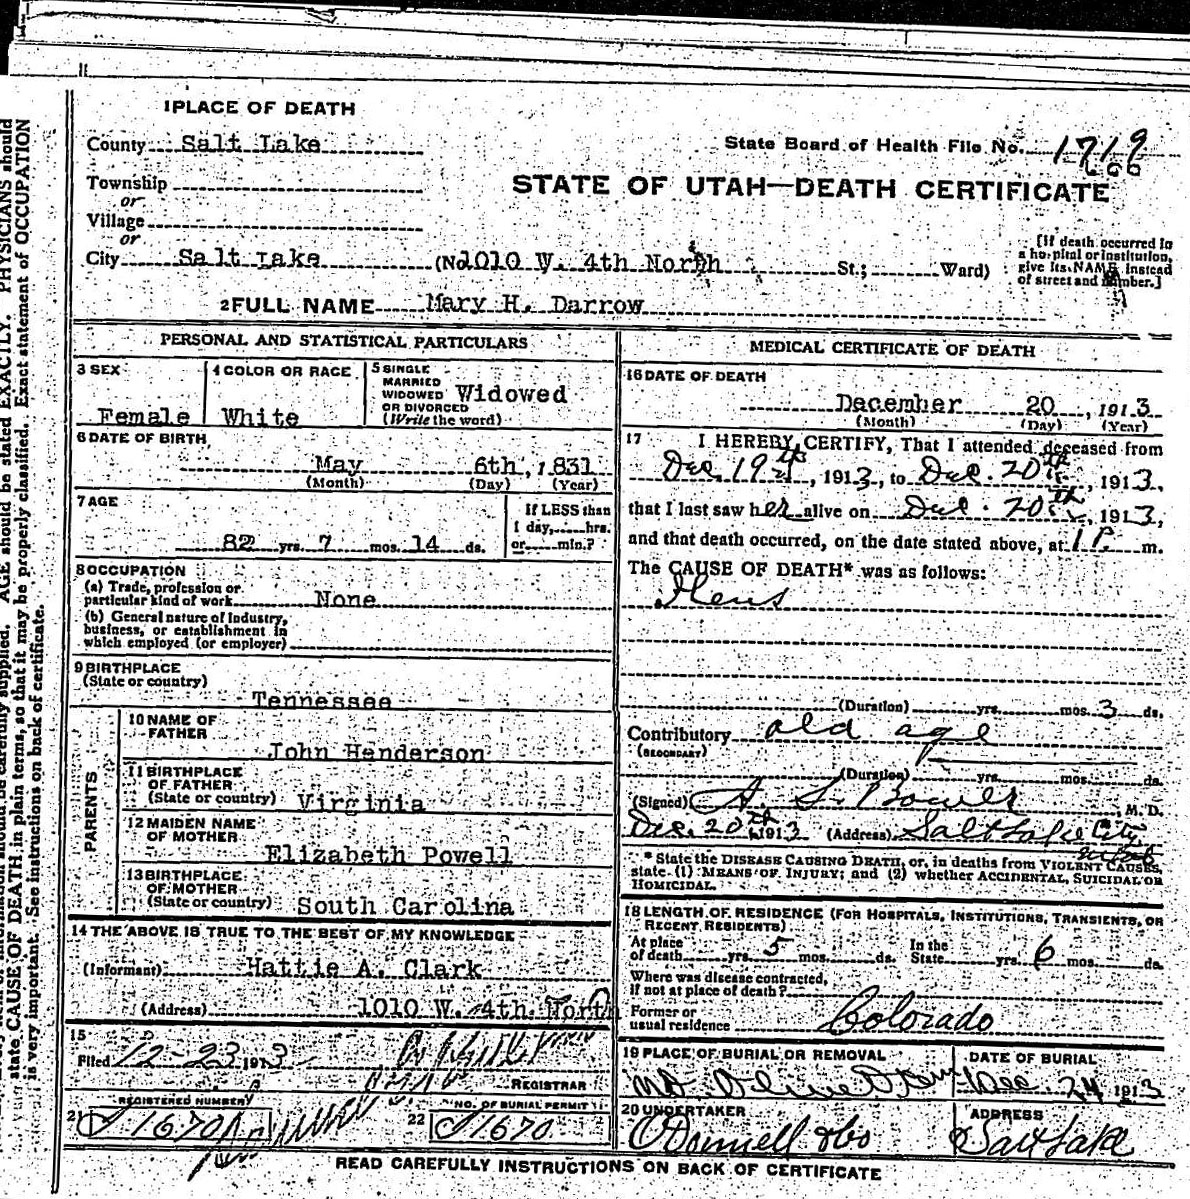 1 PLACE OF DEATH
County Salt Lake
State Board of Health File No. 1719
Township
or
Village
or
STATE OF UTAH—DEATH CERTIFICATE
City Salt Lake (No 1010 W. 4th North St.; Ward)
[If death occurred in
a hospital or institution,
give its NAME instead
of street and number.]
2 FULL NAME Mary H. Darrow
PERSONAL AND STATISTICAL PARTICULARS
3 SEX
Female
4 COLOR OR RACE
White
5 SINGLE
MARRIED
WIDOWED
OR DIVORCED
(Write the word)
Widowed
6 DATE OF BIRTH
May 6th, 1831
(Month) (Day) (Year)
7 AGE
82 yrs. 7 mos. 14 ds.
If LESS than
1 day, hrs.
or min.?
8 OCCUPATION
(a) Trade, profession or
particular kind of work None
(b) General nature of Industry,
business, or establishment in
which employed (or employer)
9 BIRTHPLACE
(State or country)
Tennessee
PARENTS
10 NAME OF
FATHER
John Henderson
11 BIRTHPLACE
OF FATHER
(State or country) Virginia
12 MAIDEN NAME
OF MOTHER
Elizabeth Powell
13 BIRTHPLACE
OF MOTHER
(State or country) South Carolina
14 THE ABOVE IS TRUE TO THE BEST OF MY KNOWLEDGE
(Informant) Hattie A. Clark
(Address) 1010 W. 4th North
15
Filed 12-23 1913
REGISTRAR
REGISTERED NUMBER
21 J 1670
NO. OF BURIAL PERMIT
22 J 1670
MEDICAL CERTIFICATE OF DEATH
16 DATE OF DEATH
December 20, 1913
(Month) (Day) (Year)
17 I HEREBY CERTIFY, That I attended deceased from
Dec. 19th, 1913, to Dec. 20th, 1913,
that I last saw her alive on Dec. 20th, 1913,
and that death occurred, on the date stated above, at 1 P. m.
The CAUSE OF DEATH* was as follows:
(Duration) yrs. mos. 3 ds.
Contributory old age
(SECONDARY)
(Duration) yrs. mos. ds.
(Signed) A. S. Bower, M. D.
Dec. 20th 1913 (Address) Salt Lake City
* State the DISEASE CAUSING DEATH, or, in deaths from VIOLENT CAUSES,
state (1) MEANS OF INJURY; and (2) whether ACCIDENTAL, SUICIDAL OR
HOMICIDAL.
18 LENGTH OF RESIDENCE (FOR HOSPITALS, INSTITUTIONS, TRANSIENTS, OR
RECENT RESIDENTS)
At place
of death yrs. 5 mos. ds.
In the
State yrs. 6 mos. ds.
Where was disease contracted,
if not at place of death?
Former or
usual residence Colorado
19 PLACE OF BURIAL OR REMOVAL
Mt Olivet
DATE OF BURIAL
Dec. 24 1913
20 UNDERTAKER
O'Donnell & Co
ADDRESS
Salt Lake
READ CAREFULLY INSTRUCTIONS ON BACK OF CERTIFICATE
AGE should be stated EXACTLY. PHYSICIANS should
state CAUSE OF DEATH in plain terms, so that it may be properly classified. Exact statement of OCCUPATION
is very important. See instructions on back of certificate.